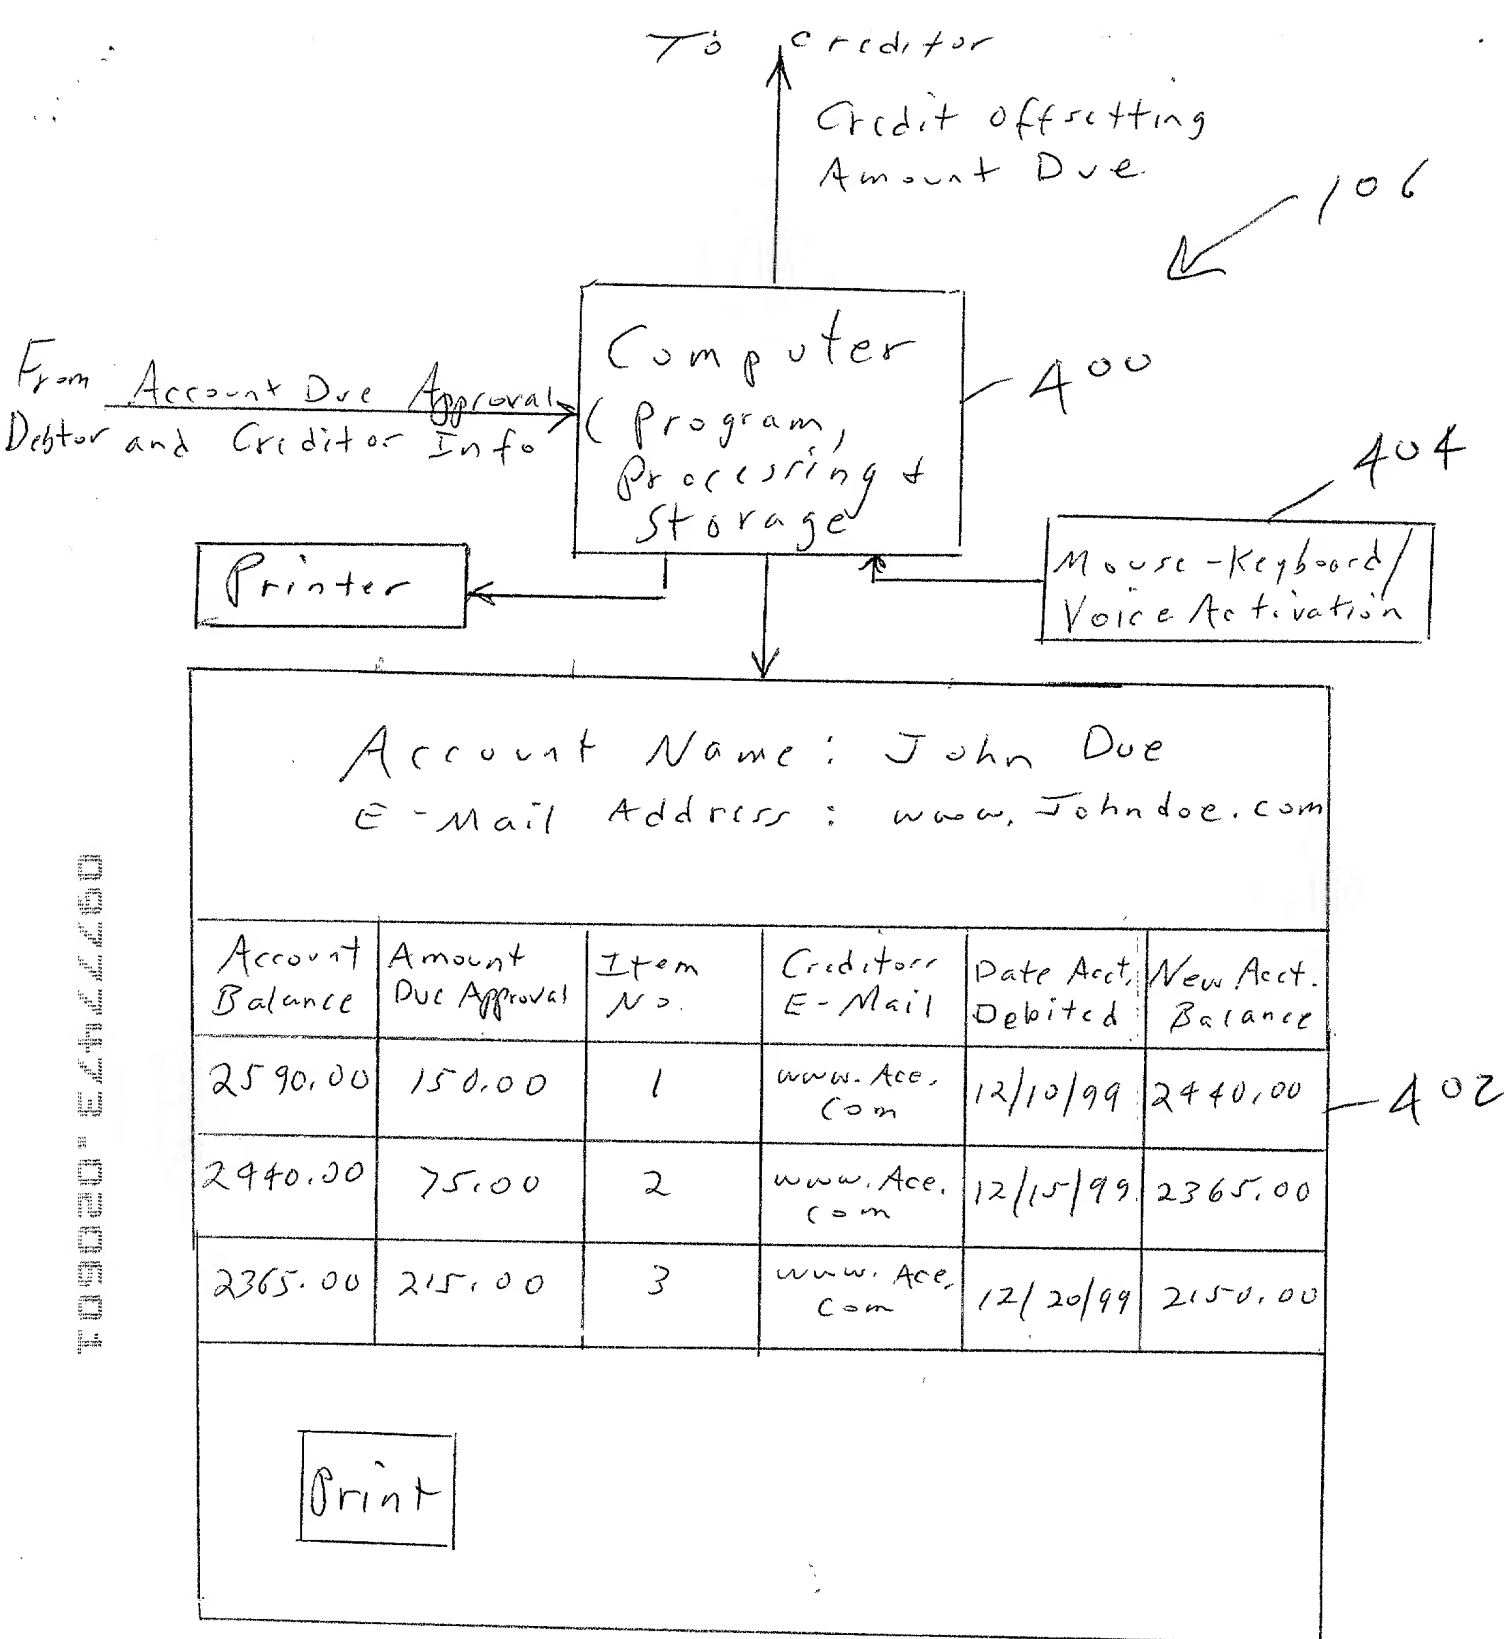 To creditor
Credit offsetting
Amount Due
106
Computer
(Program,
Processing +
Storage
400
From Account Due Approval
Debtor and Creditor Info
404
Mouse-Keyboard/
Voice Activation
Printer
Account Name: John Due
E-Mail Address: www.Johndoe.com
Account Balance | Amount Due Approval | Item No. | Creditors E-Mail | Date Acct. Debited | New Acct. Balance
2590.00 | 150.00 | 1 | www.Ace.com | 12/10/99 | 2440.00
2440.00 | 75.00 | 2 | www.Ace.com | 12/15/99 | 2365.00
2365.00 | 215.00 | 3 | www.Ace.com | 12/20/99 | 2150.00
402
Print
09774773.020501